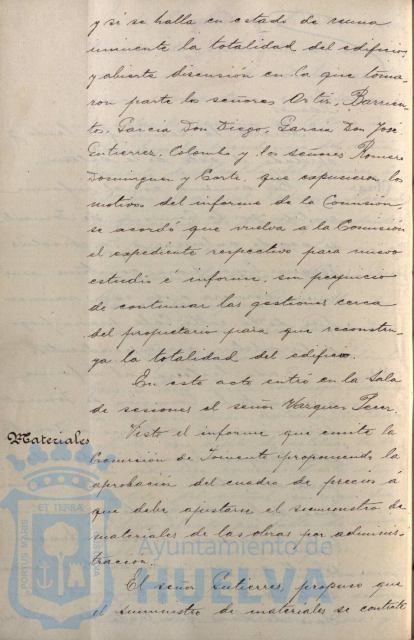 y si se halla en estado de ruina
inminente la totalidad del edificio,
y abierta discusión en la que toma-
ron parte los señores Ortiz, Barrien-
tos, Garcia Don Diego, Garcia Don José
Gutierrez, Colombo y los señores Romero
Dominguez y Corte, que expusieron los
motivos del informe de la Comisión,
se acordó que vuelva a la Comisión
el expediente respectivo para nuevo
estudio é informe, sin perjuicio
de continuar las gestiones cerca
del propietario para que reconstru-
ya la totalidad del edificio.
En este acto entró en la Sala
de sesiones el señor Vazquez Perez.
Materiales
Visto el informe que emite la
Comisión de Fomento proponiendo la
aprobación del cuadro de precios á
que debe ajustarse el suministro de
materiales de las obras por adminis-
tracion.
El señor Gutierrez propuso que
el suministro de materiales se contrate
PORTUS MARIS
ET TERRAE
Ayuntamiento de
HUELVA